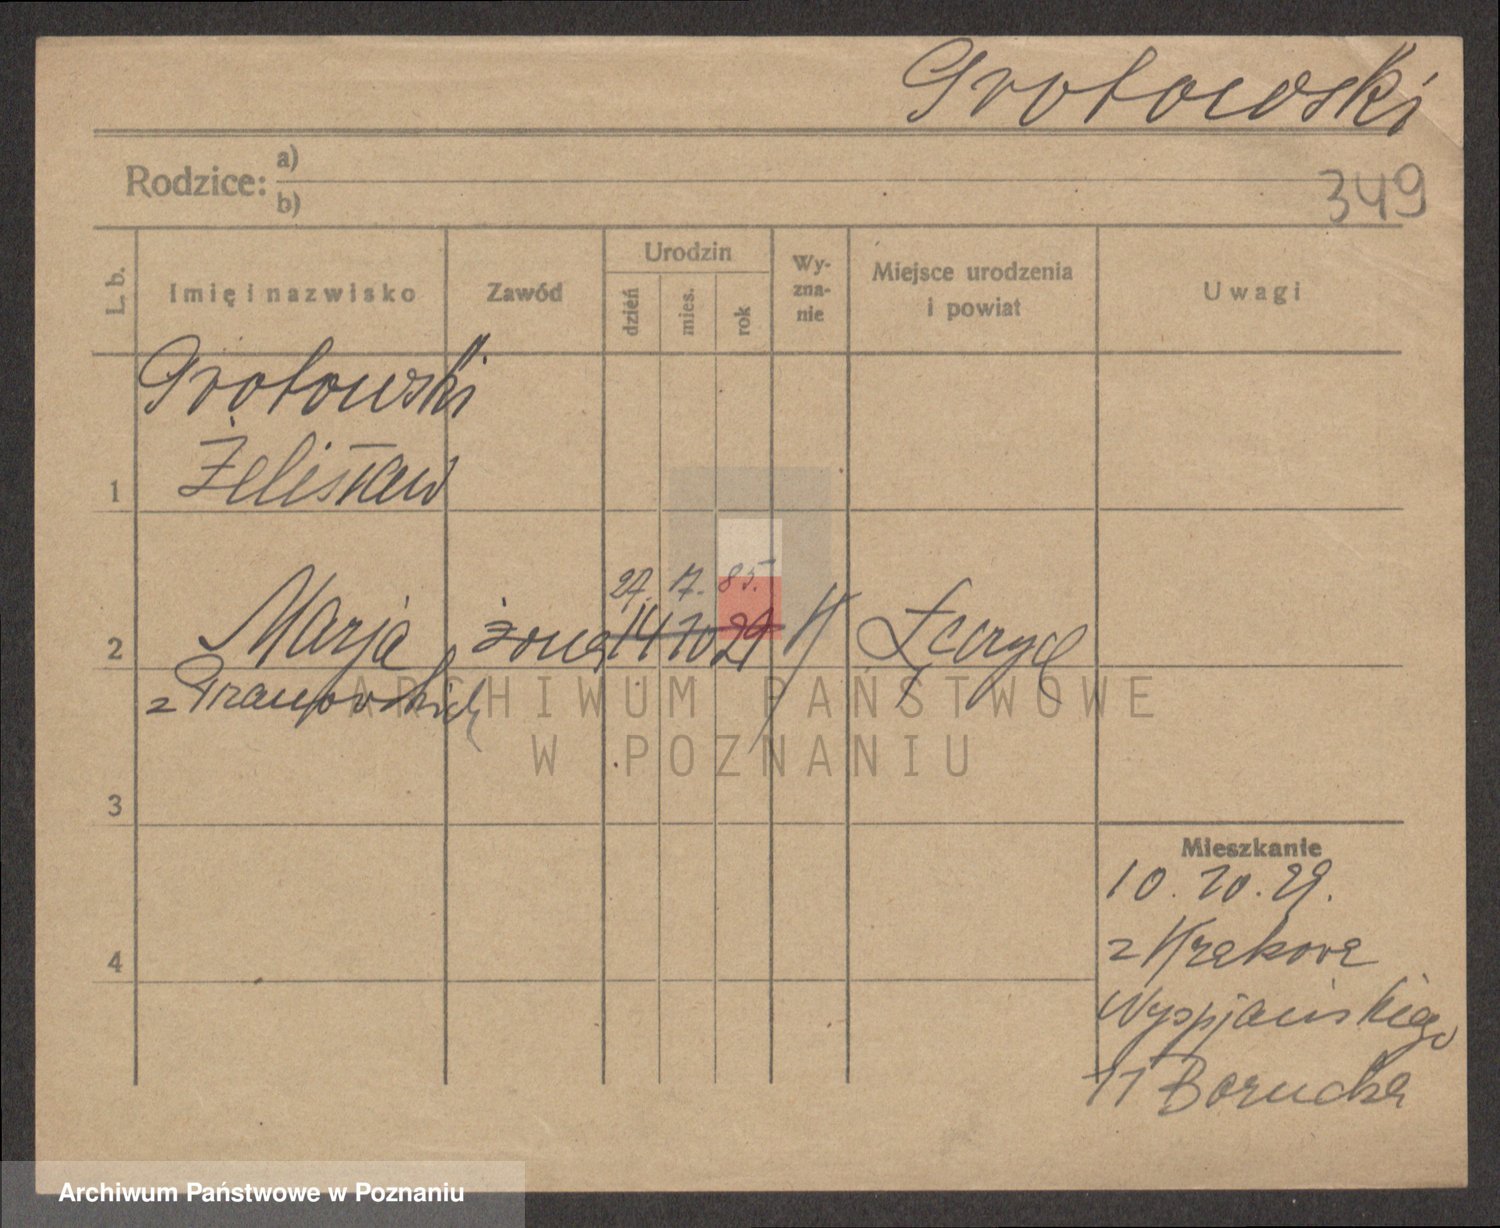 Grotowski
Rodzice: a)
b)
349
L. b.
Imię i nazwisko
Zawód
Urodzin
dzień
mies.
rok
Wy-
zna-
nie
Miejsce urodzenia
i powiat
Uwagi
Grotowski
1 Żelisław
27. 17. 85.
2 Marja żona 14 10 29 K
z
ARCHIWUM PAŃSTWOWE
W POZNANIU
3
Mieszkanie
10. 10. 29.
z Krakowa
4
Wyspjańskiego
11 Borucka
Archiwum Państwowe w Poznaniu